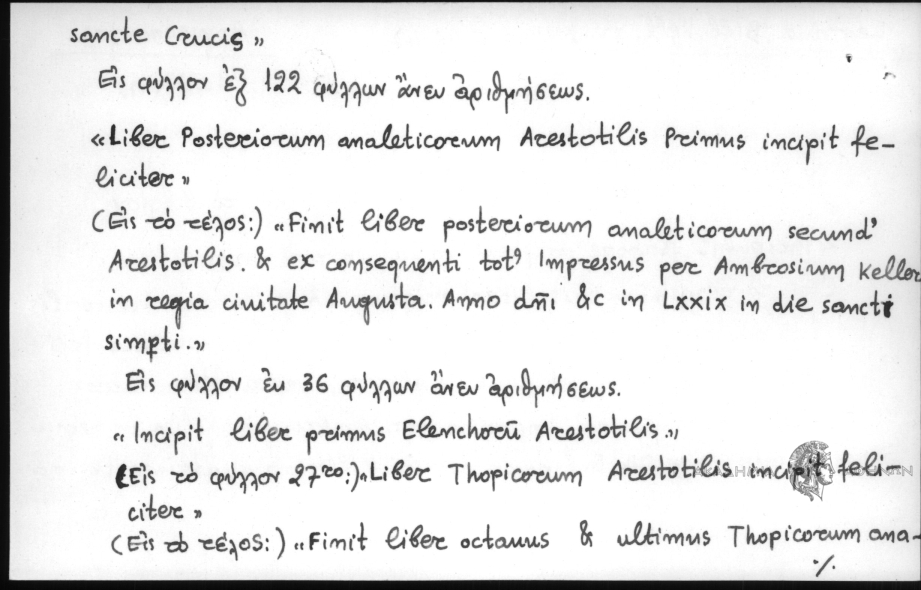 sancte Crucis »
Εἰς φύλλον ἐξ 122 φύλλων ἄνευ ἀριθμήσεως.
«Liber Posteriorum analeticorum Arestotilis Primus incipit fe-
liciter»
(Εἰς τὸ τέλος:) «Finit liber posteriorum analeticorum secund'
Arestotilis. & ex consequenti totꝰ Impressus per Ambrosium Keller
in regia ciuitate Augusta. Anno dm̄i &c in Lxxix in die sancti
simpti.»
Εἰς φύλλον ἐκ 36 φύλλων ἄνευ ἀριθμήσεως.
«Incipit liber primus Elenchorū Arestotilis.»
(Εἰς τὸ φύλλον 27ro:) «Liber Thopicorum Arestotilis incipit feli-
citer»
(Εἰς τὸ τέλος:) «Finit liber octauus & ultimus Thopicorum ana-
·/.